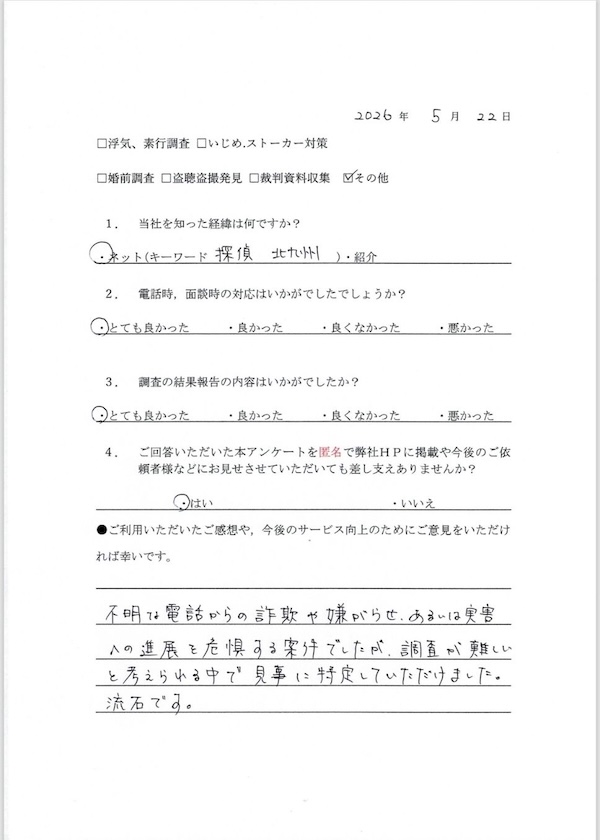 2026年 5月 22日
□浮気、素行調査 □いじめ.ストーカー対策
□婚前調査 □盗聴盗撮発見 □裁判資料収集 ☑その他
1. 当社を知った経緯は何ですか?
・ネット(キーワード 探偵 北九州 )・紹介
2. 電話時，面談時の対応はいかがでしたでしょうか?
・とても良かった ・良かった ・良くなかった ・悪かった
3. 調査の結果報告の内容はいかがでしたか?
・とても良かった ・良かった ・良くなかった ・悪かった
4. ご回答いただいた本アンケートを匿名で弊社HPに掲載や今後のご依
頼者様などにお見せさせていただいても差し支えありませんか?
・はい ・いいえ
●ご利用いただいたご感想や，今後のサービス向上のためにご意見をいただけ
れば幸いです。
不明な電話からの詐欺や嫌がらせ、あるいは実害
への進展を危惧する案件でしたが、調査が難しい
と考えられる中で見事に特定していただけました。
流石です。